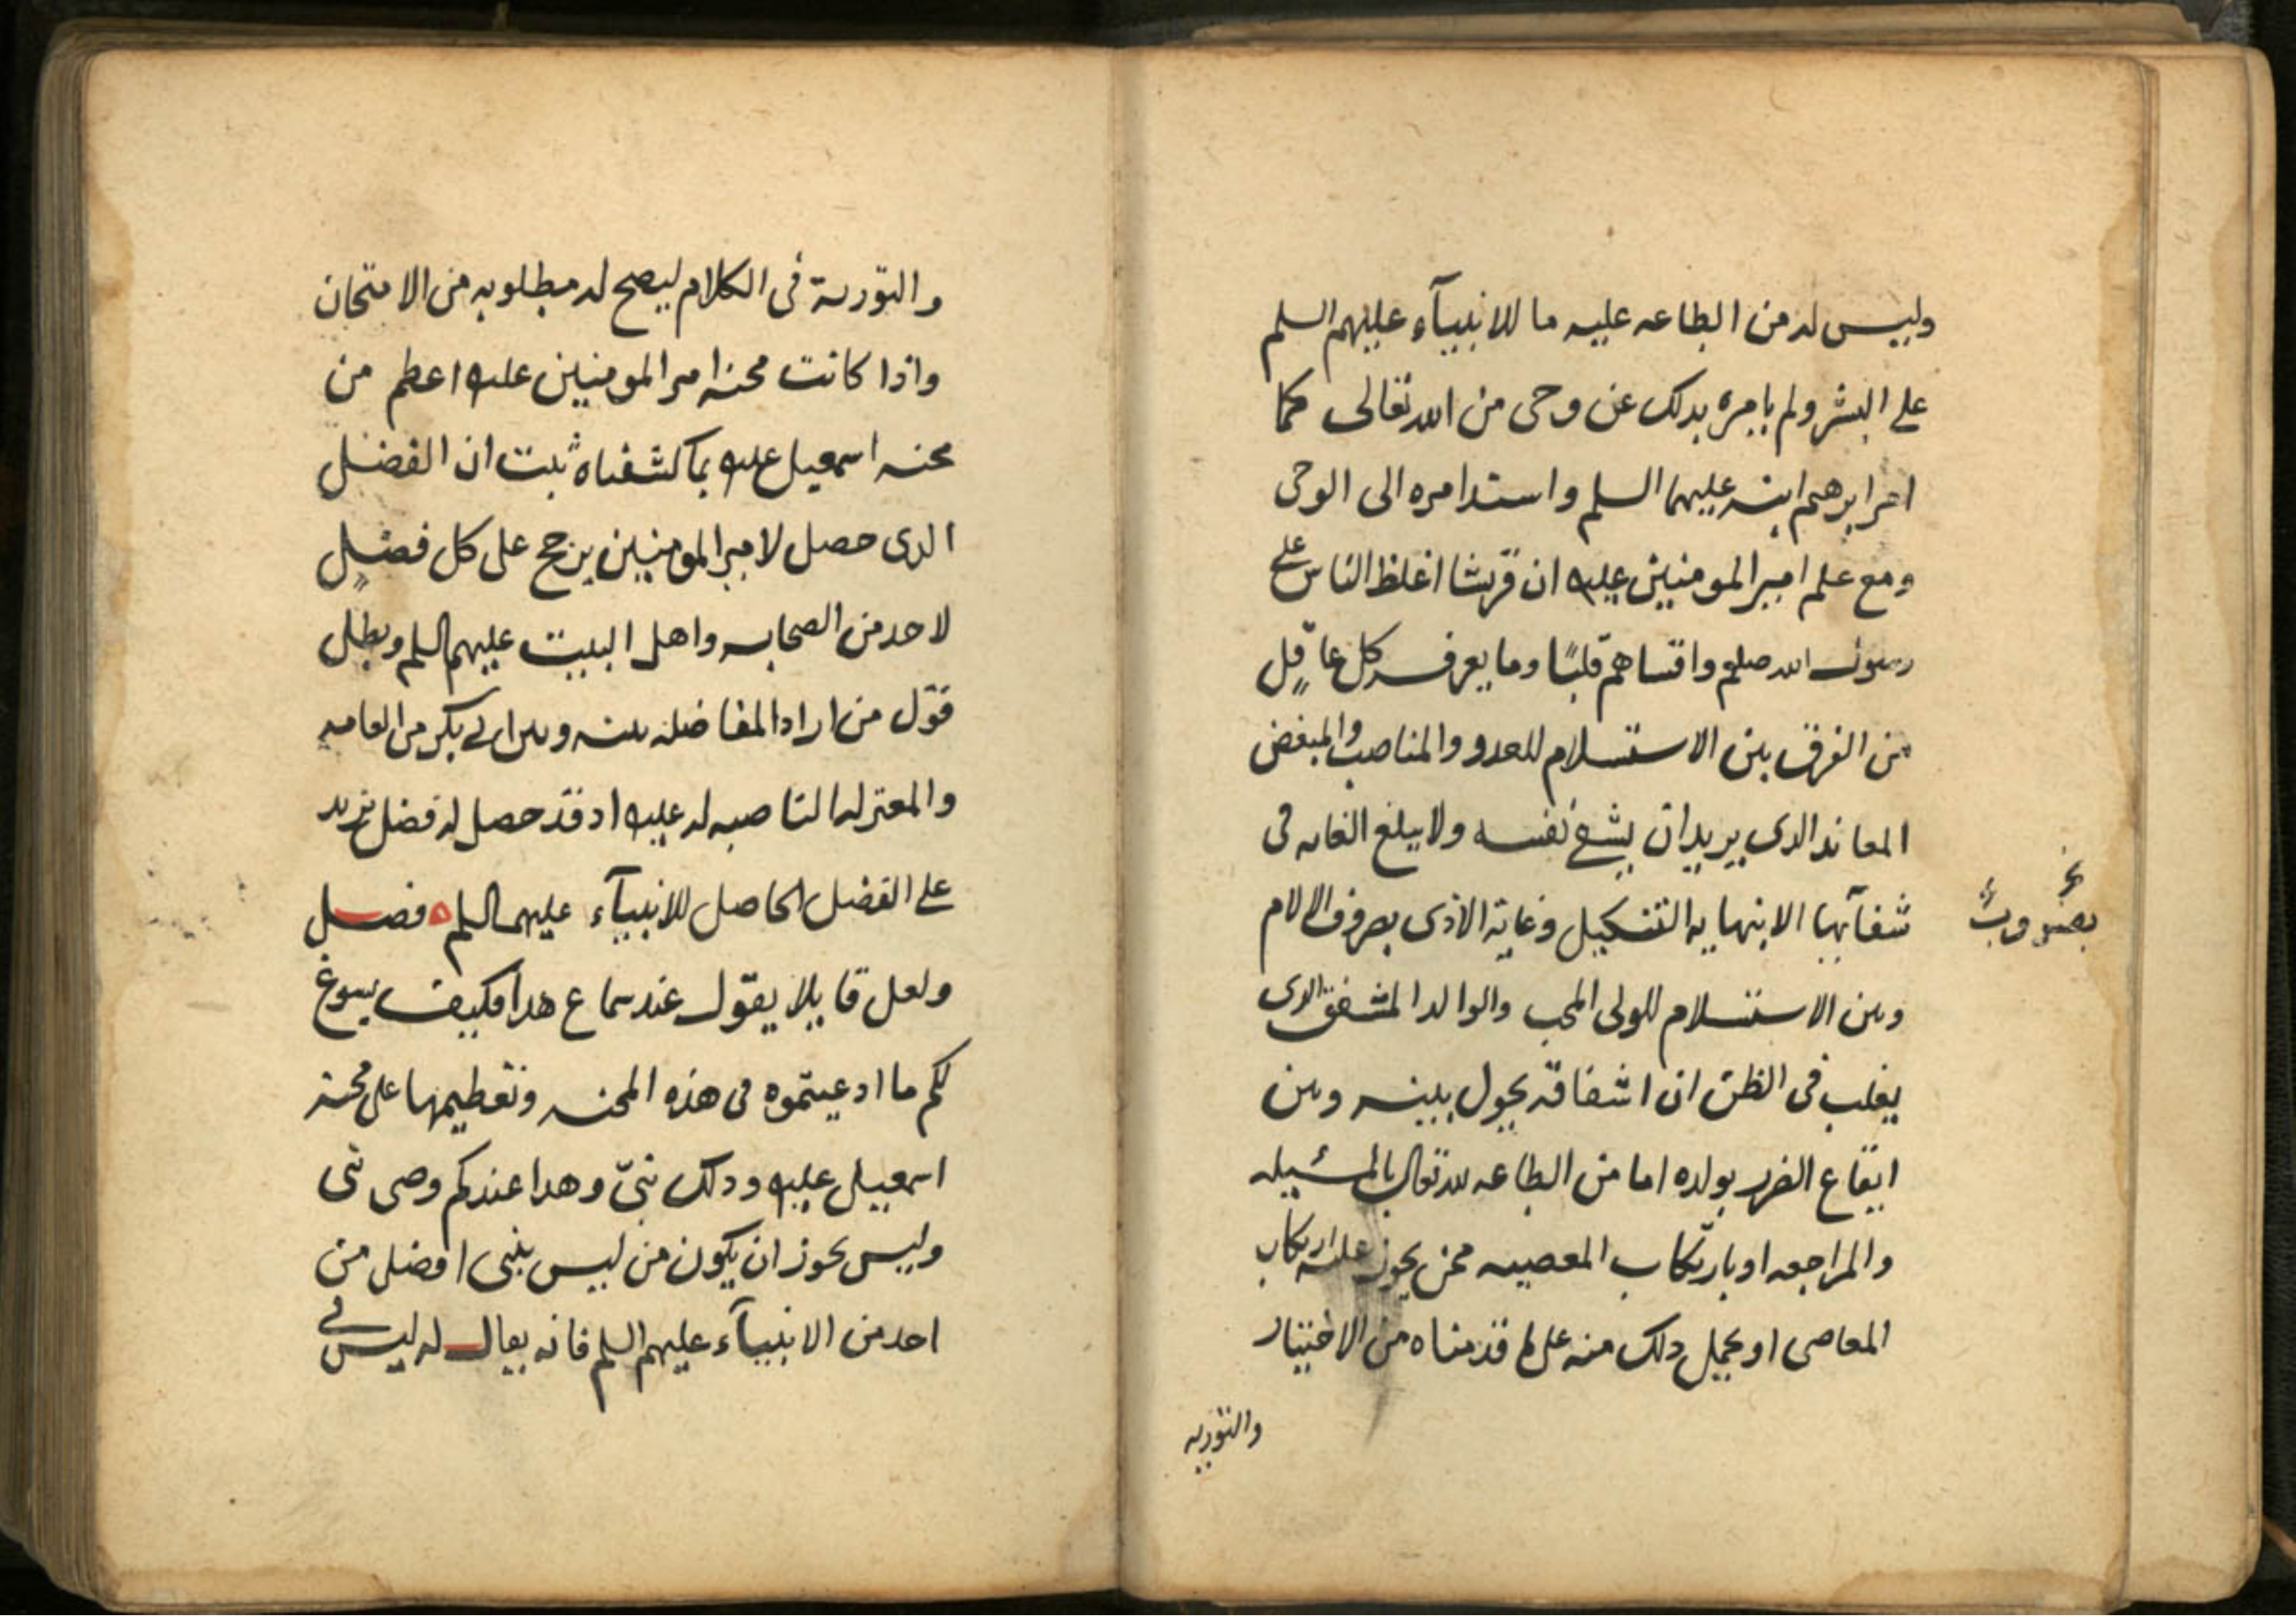 وليس له من الطاعه عليه ما للانبيآء عليهم السلم
على البشر ولم يامره بدلك عن وحى من الله تعالى كما
امر ابرهيم ابنه عليهما السلم واستد امره الى الوحى
ومع علم امير المومنين عليه ان قريشا اغلظ الناس على
رسول الله صلعم واقساهم قلبًا وما يعرفه كل عاقلٍ
من الفرق بين الاستسلام للعدو والمناصب والمبغض
المعاند الدى يريد ان يشفى نفسه ولا يبلغ الغايه فى
شفآئها الا بنهايه التنكيل وغاية الاذى بصروف الالام
بضروب
وبين الاستسلام للولى المحب والوالد المشفق الدى
يغلب فى الظن ان اشفاقه يحول بينه وبين
ايقاع الضرر بولده اما من الطاعه لله تعالى بالمسئيله
والمراجعه او بارتكاب المعصيه ممن يجوز عليه ارتكاب
المعاصى او يحمل دلك منه على ما قدمناه من الاختيار
والتوريه
والتورية فى الكلام ليصح له مطلوبه من الامتحان
واذا كانت محنه امير المومنين عليه اعظم من
محنه اسمعيل عليه بما كشفناه ثبت ان الفضل
الدى حصل لامير المومنين يرجح على كل فضلٍ
لاحد من الصحابه واهل البيت عليهم السلم وبطل
قول من اراد المفاضله بينه وبين ابى بكر من العامه
والمعتزله الناصبه له عليه اد قد حصل له فضل يزيد
على الفضل الحاصل للانبيآء عليهم السلم ه فصل
ولعل قايلا يقول عند سماع هدا فكيف يسوغ
لكم ما ادعيتموه فى هذه المحنه وتعظيمها على محنة
اسمعيل عليه ودلك نبىّ وهدا عندكم وصى نبى
وليس يجوز ان يكون من ليس بنبى افضل من
احد من الانبيآء عليهم السلم فانه يقال له ليس فى